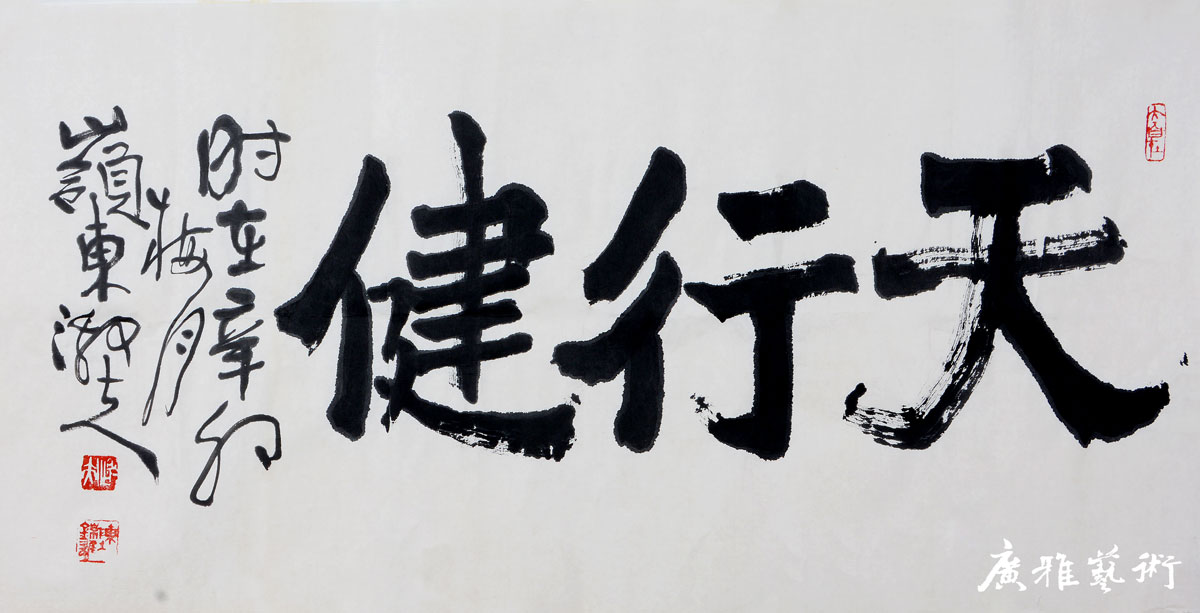 天行健
时在辛卯
梅月
嶺東
廣雅藝術